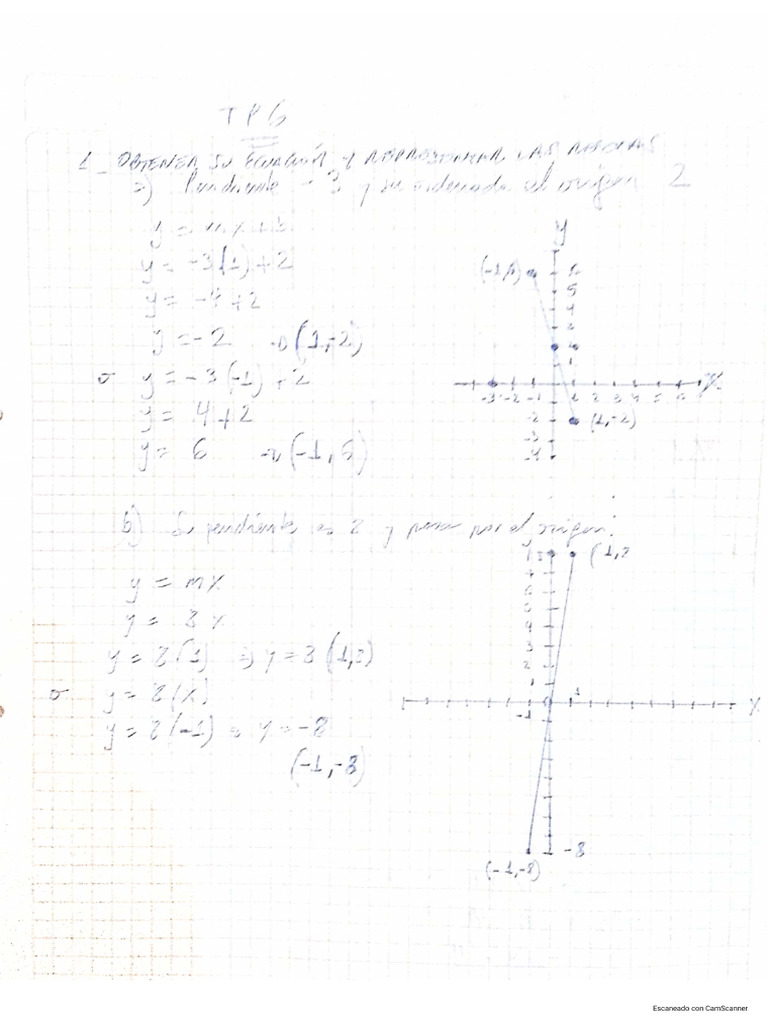 TP6
1_ OBTENER SU ECUACIÓN Y REPRESENTAR LAS RECTAS
a) Pendiente -3 y su ordenada al origen 2
y = mx+b
y = -3(1)+2
y = -4+2
y = -2 → (1,-2)
o y = -3(-1)+2
y = 4+2
y = 6 → (-1,6)
y
(-1,6)
6
5
x
-3 -2 -1 1 2 3 4 5 6
(1,-2)
-2
-3
-4
b) Su pendiente es 8 y pasa por el origen.
y = mx
y = 8x
y = 8(1) ⇒ y = 8 (1,8)
o y = 8(x)
y = 8(-1) ⇒ y = -8
(-1,-8)
y
(1,8
1
-1
x
-8
(-1,-8)
Escaneado con CamScanner